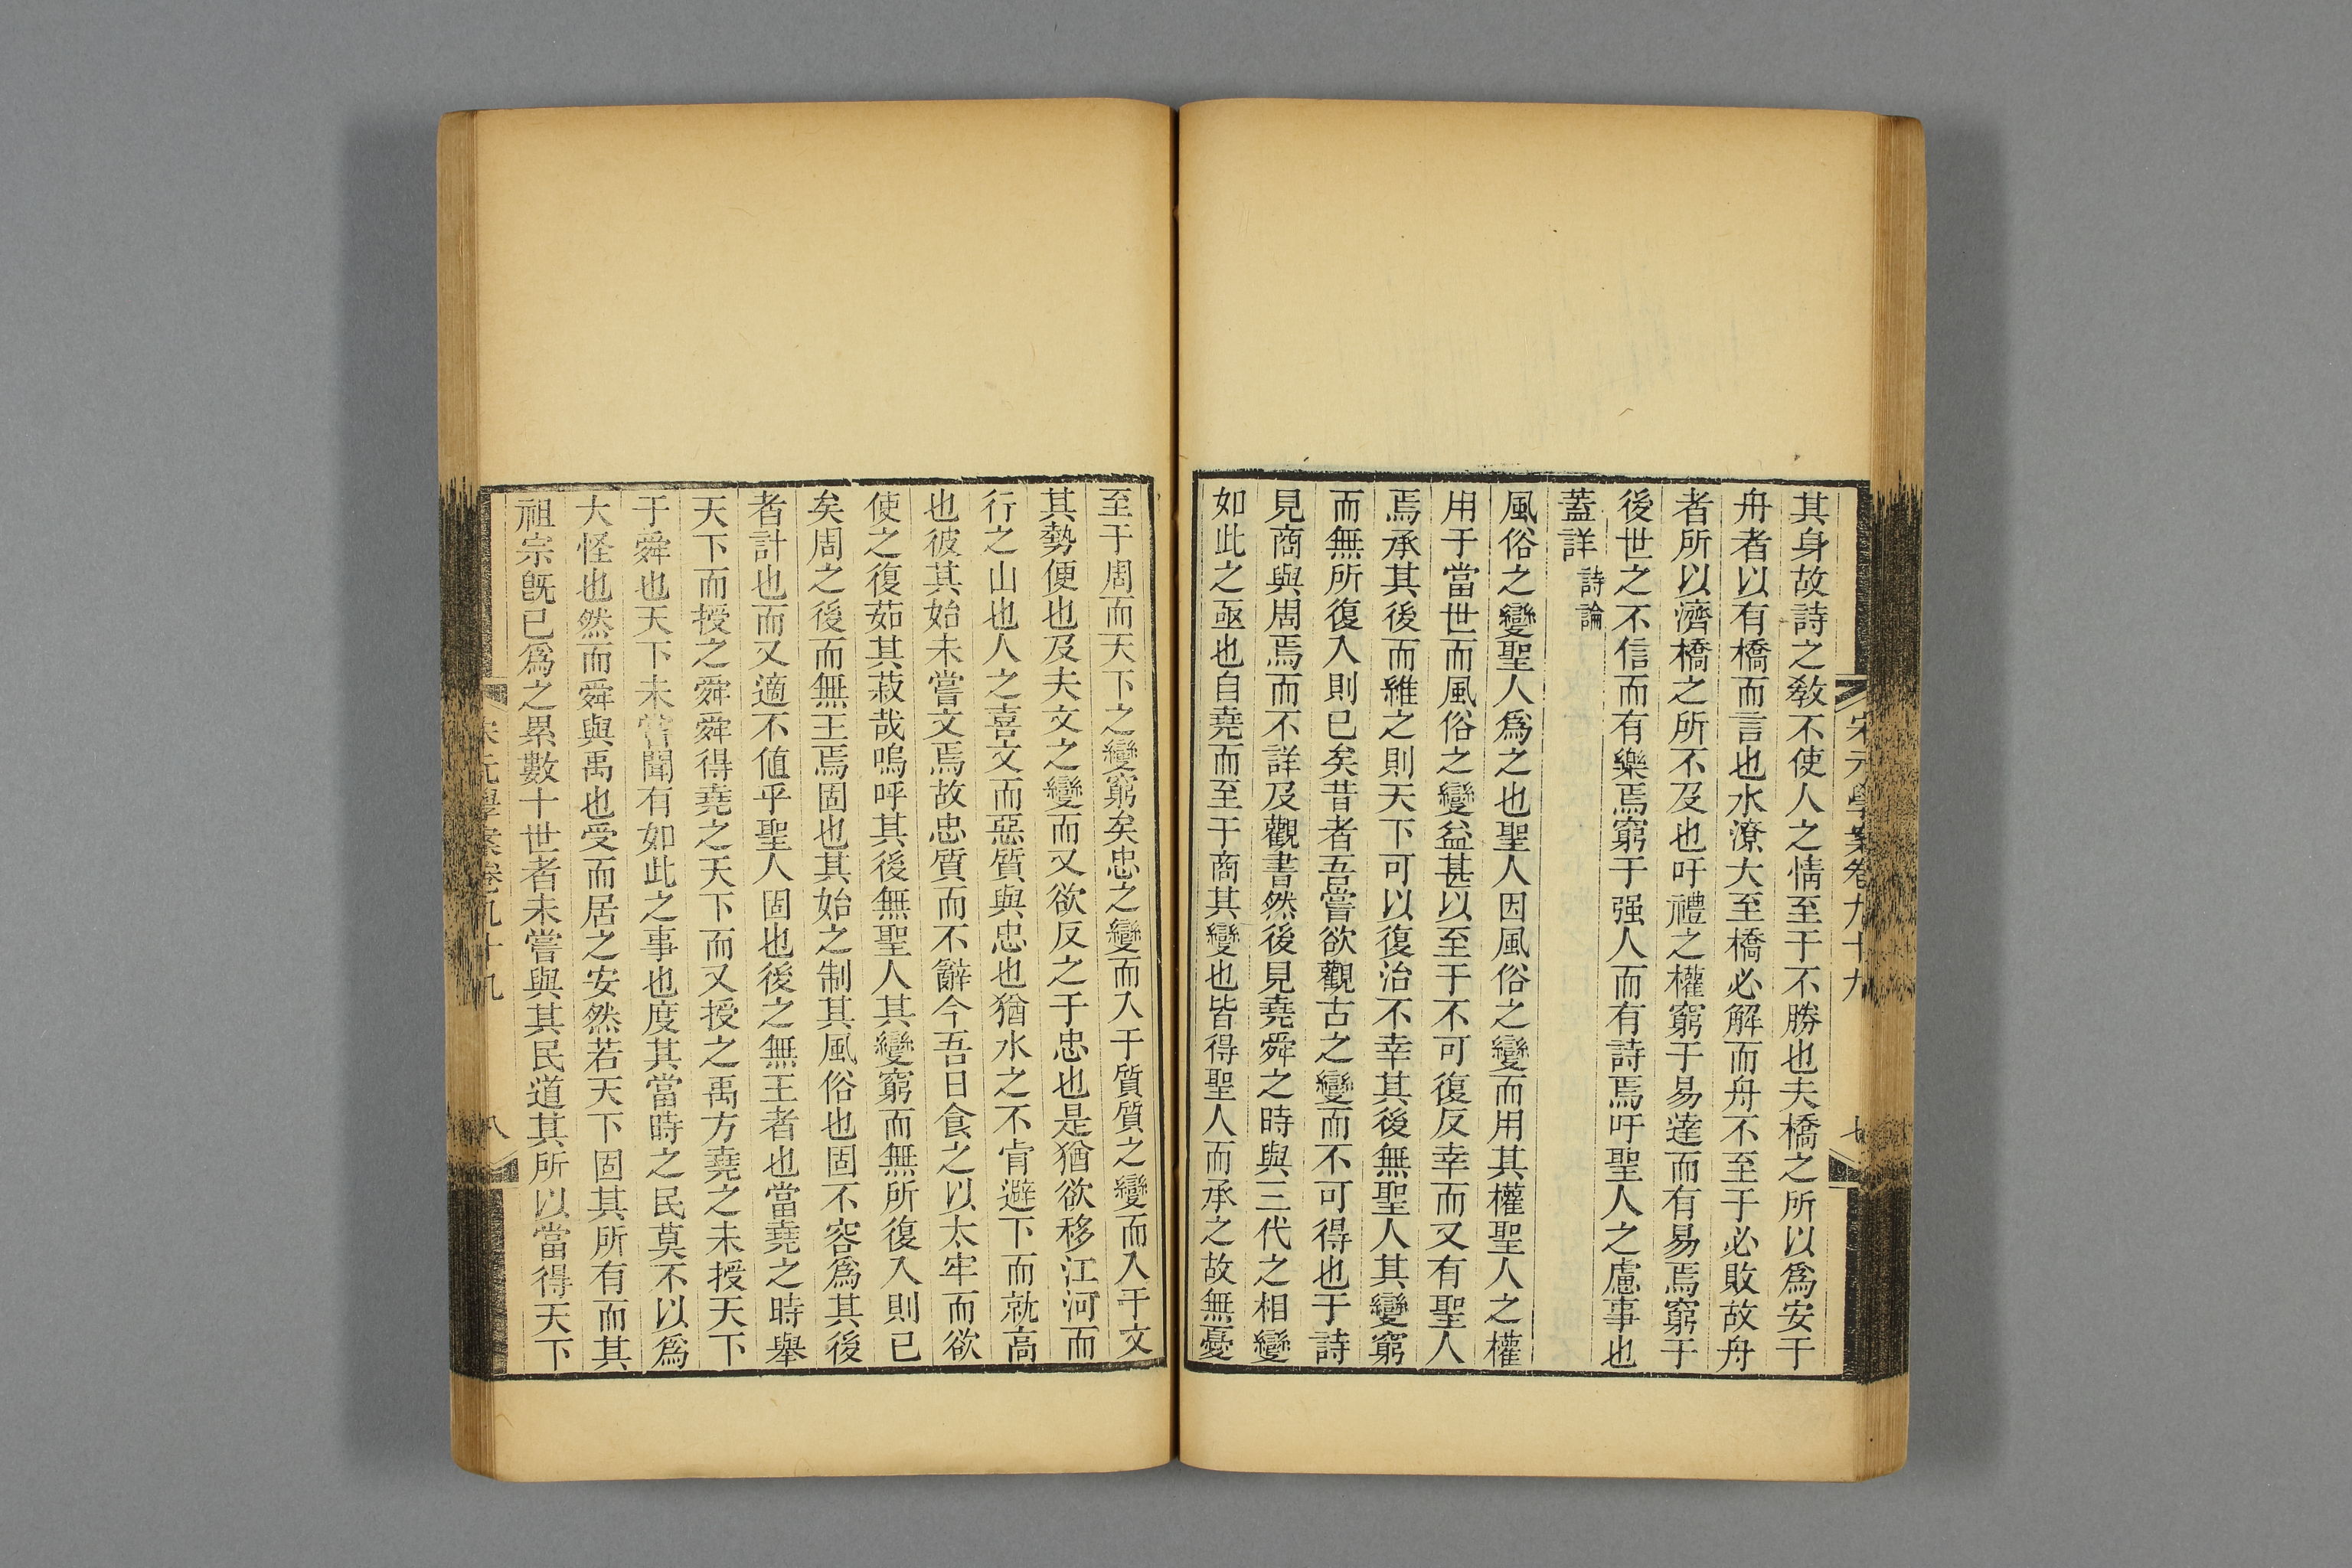 宋元學案卷九十九
七
其身故詩之敎不使人之情至于不勝也夫橋之所以爲安于
舟者以有橋而言也水潦大至橋必解而舟不至于必敗故舟
者所以濟橋之所不及也吁禮之權窮于易達而有易焉窮于
後世之不信而有樂焉窮于强人而有詩焉吁聖人之慮事也
蓋詳詩論
風俗之變聖人爲之也聖人因風俗之變而用其權聖人之權
用于當世而風俗之變益甚以至于不可復反幸而又有聖人
焉承其後而維之則天下可以復治不幸其後無聖人其變窮
而無所復入則已矣昔者吾嘗欲觀古之變而不可得也于詩
見商與周焉而不詳及觀書然後見堯舜之時與三代之相變
如此之亟也自堯而至于商其變也皆得聖人而承之故無憂
至于周而天下之變窮矣忠之變而入于質質之變而入于文
其勢便也及夫文之變而又欲反之于忠也是猶欲移江河而
行之山也人之喜文而惡質與忠也猶水之不肯避下而就高
也彼其始未嘗文焉故忠質而不辭今吾日食之以太牢而欲
使之復茹其菽哉嗚呼其後無聖人其變窮而無所復入則已
矣周之後而無王焉固也其始之制其風俗也固不容爲其後
者計也而又適不値乎聖人固也後之無王者也當堯之時舉
天下而授之舜舜得堯之天下而又授之禹方堯之未授天下
于舜也天下未嘗聞有如此之事也度其當時之民莫不以爲
大怪也然而舜與禹也受而居之安然若天下固其所有而其
祖宗旣已爲之累數十世者未嘗與其民道其所以當得天下
宋元學案卷九十九
八